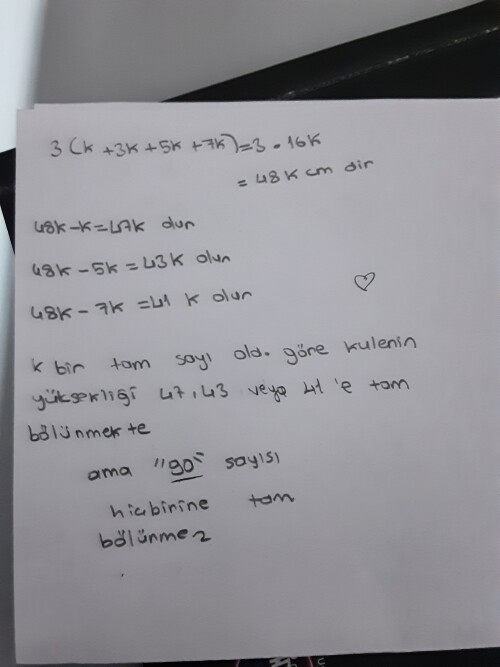 3(k +3k +5k +7k)=3 • 16k
= 48k cm dir
48k-k=47k dur
48k - 5k = 43k olur
48k - 7k = 41 k olur
k bir tam sayı old. göre kulenin
yüksekliği 47,43 veya 41'e tam
bölünmekte
ama "90" sayısı
hiçbirine tam
bölünmez